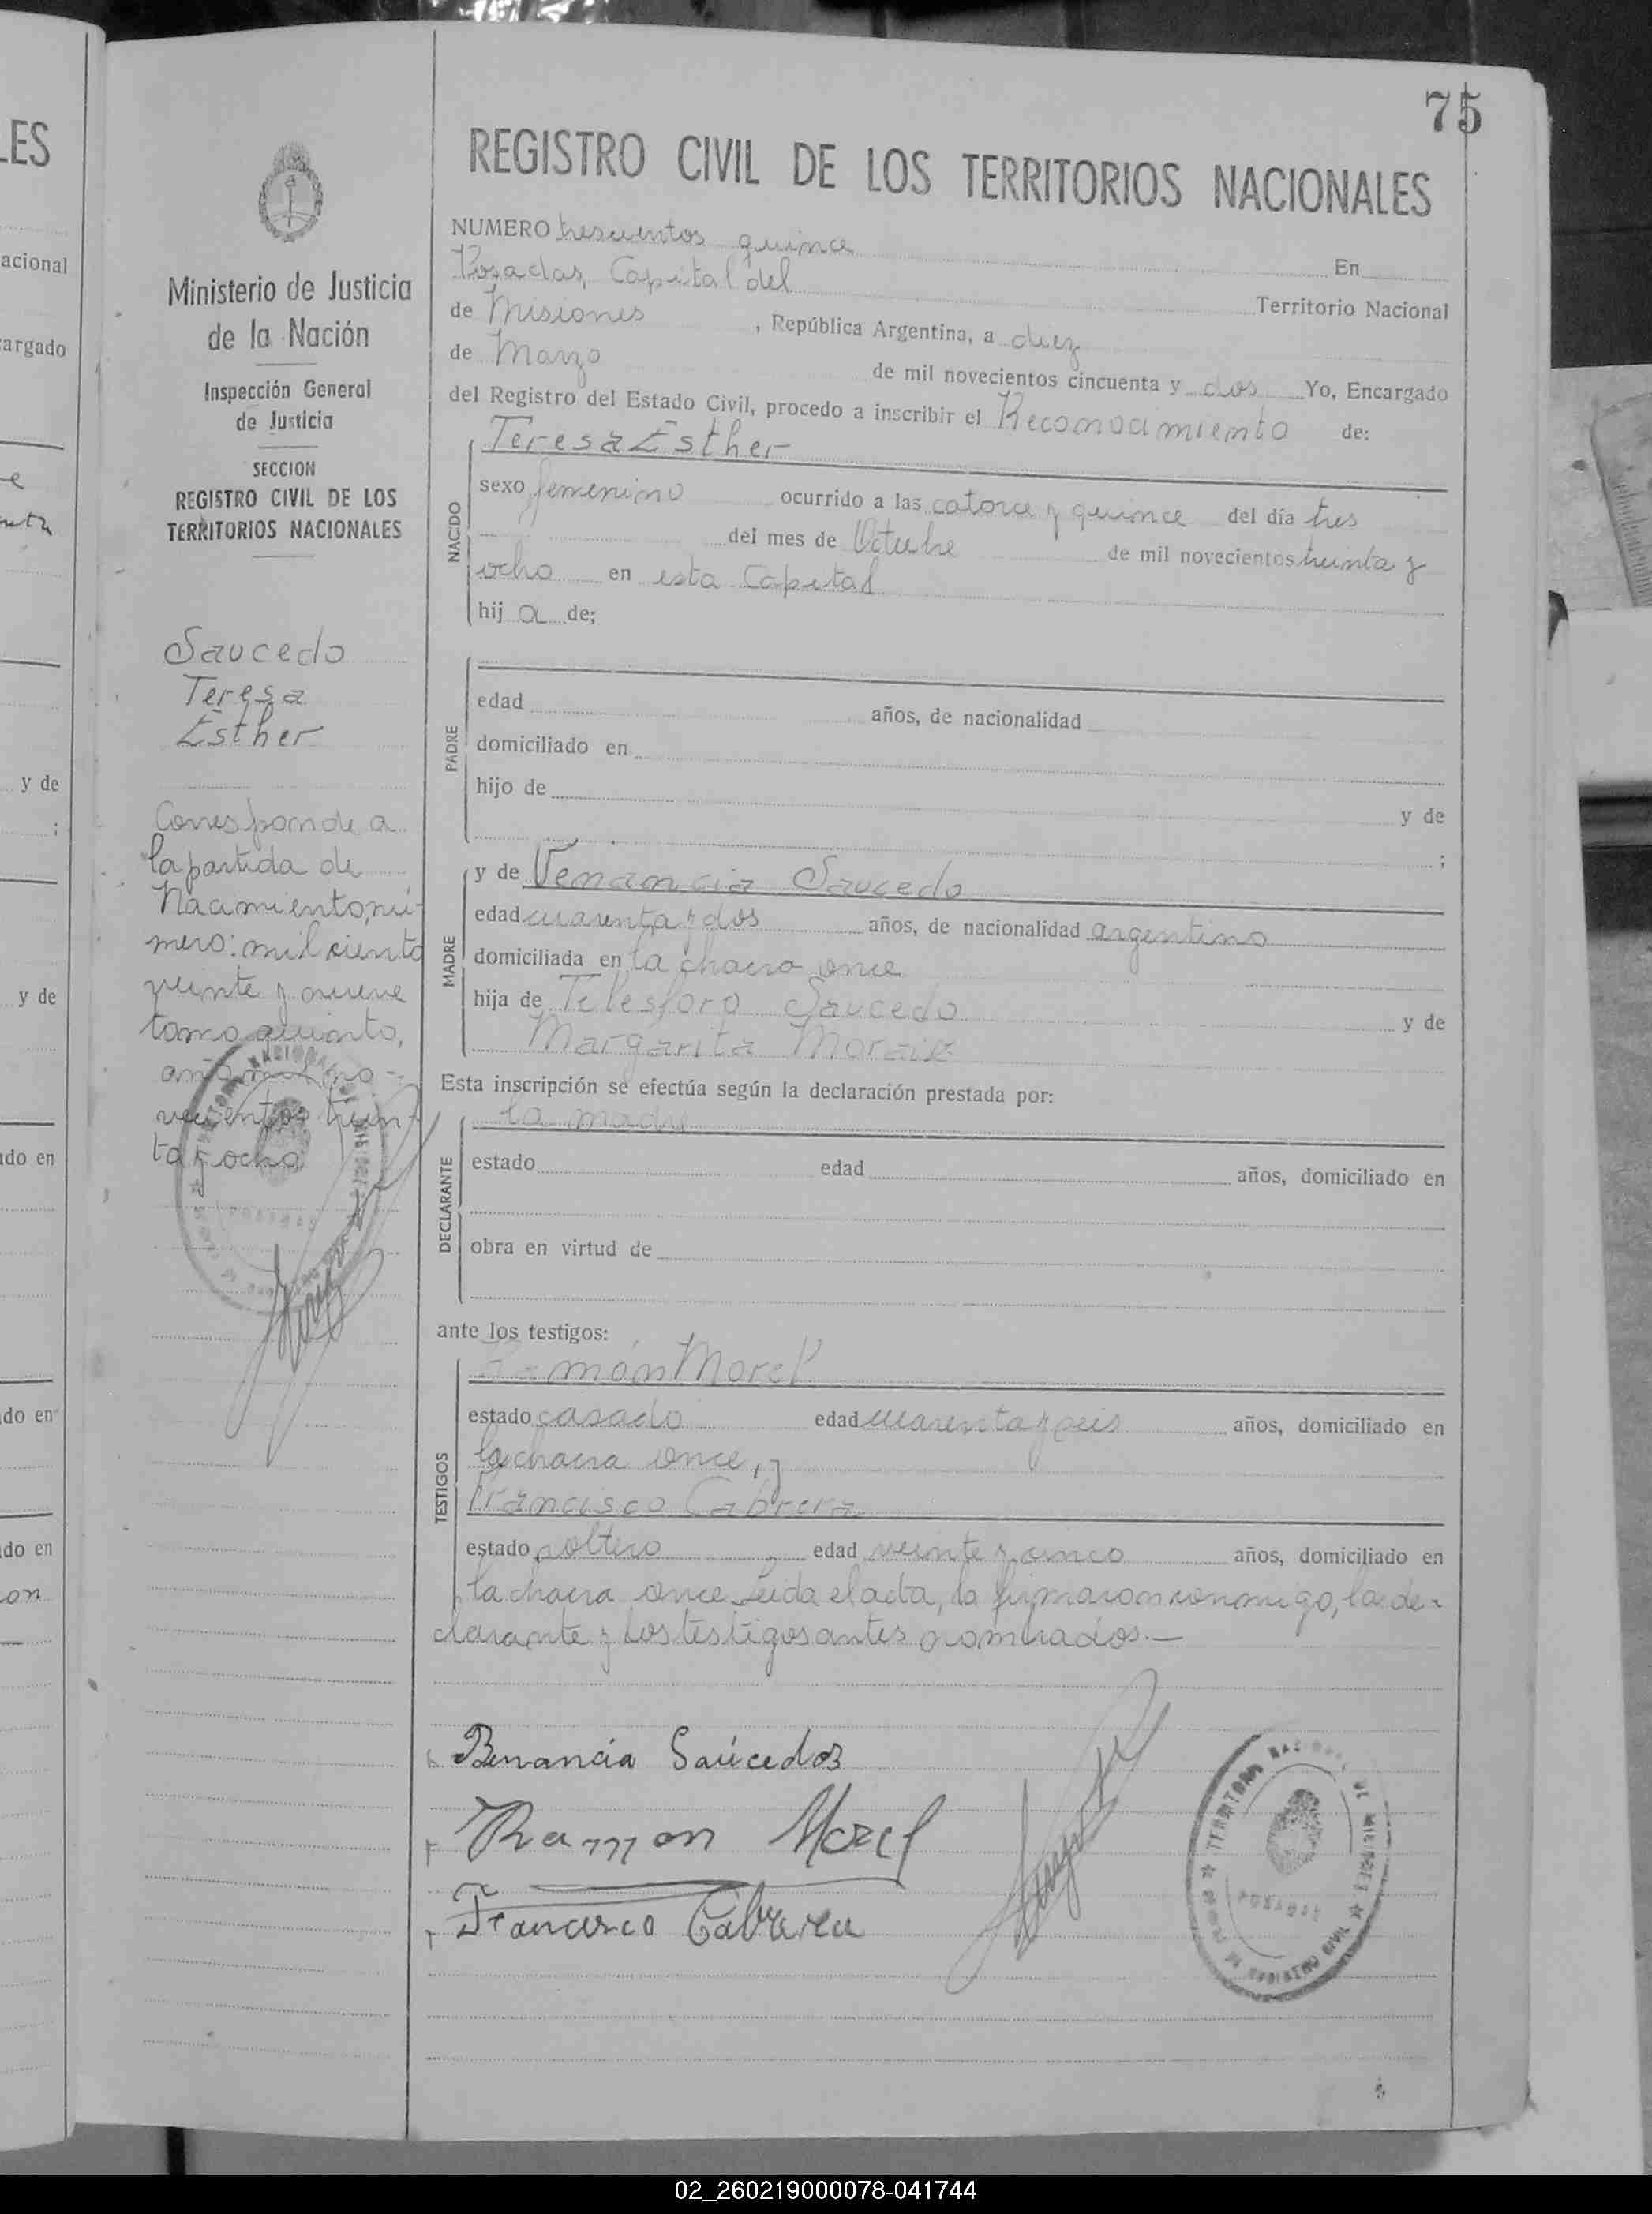 75
REGISTRO CIVIL DE LOS TERRITORIOS NACIONALES
Ministerio de Justicia
de la Nación
Inspección General
de Justicia
SECCION
REGISTRO CIVIL DE LOS
TERRITORIOS NACIONALES
Saucedo
Teresa
Esther
Corresponde a
la partida de
Nacimiento, nú-
mero: mil ciento
veinte y nueve
tomo quinto,
año mil no-
vecientos trein-
ta y ocho
NUMERO trescientos quince En
Posadas, Capital del Territorio Nacional
de Misiones, República Argentina, a diez
de Marzo de mil novecientos cincuenta y dos Yo, Encargado
del Registro del Estado Civil, procedo a inscribir el Reconocimiento de:
NACIDO
Teresa Esther
sexo femenino ocurrido a las catorce y quince del día tres
del mes de Octubre de mil novecientos treinta y
ocho en esta Capital
hija de;
PADRE
edad años, de nacionalidad
domiciliado en
hijo de y de
;
MADRE
y de Venancia Saucedo
edad cuarenta y dos años, de nacionalidad argentina
domiciliada en la chacra once
hija de Telesforo Saucedo y de
Margarita
Esta inscripción se efectúa según la declaración prestada por:
DECLARANTE
la madre
estado edad años, domiciliado en
obra en virtud de
ante los testigos:
TESTIGOS
Ramón Morel
estado casado edad cuarenta y seis años, domiciliado en
la chacra once, y
Francisco Cabrera
estado soltero edad veinte y cinco años, domiciliado en
la chacra once. Leida el acta, la firmaron conmigo, la de-
clarante y los testigos antes nombrados.—
Benancia Saúcedos
Ramon Morel
Francisco Cabrera
TERRITORIO NACIONAL DE MISIONES
POSADAS
LES
acional
argado
e
y de
;
y de
do en
do en
do en
on
02_260219000078-041744